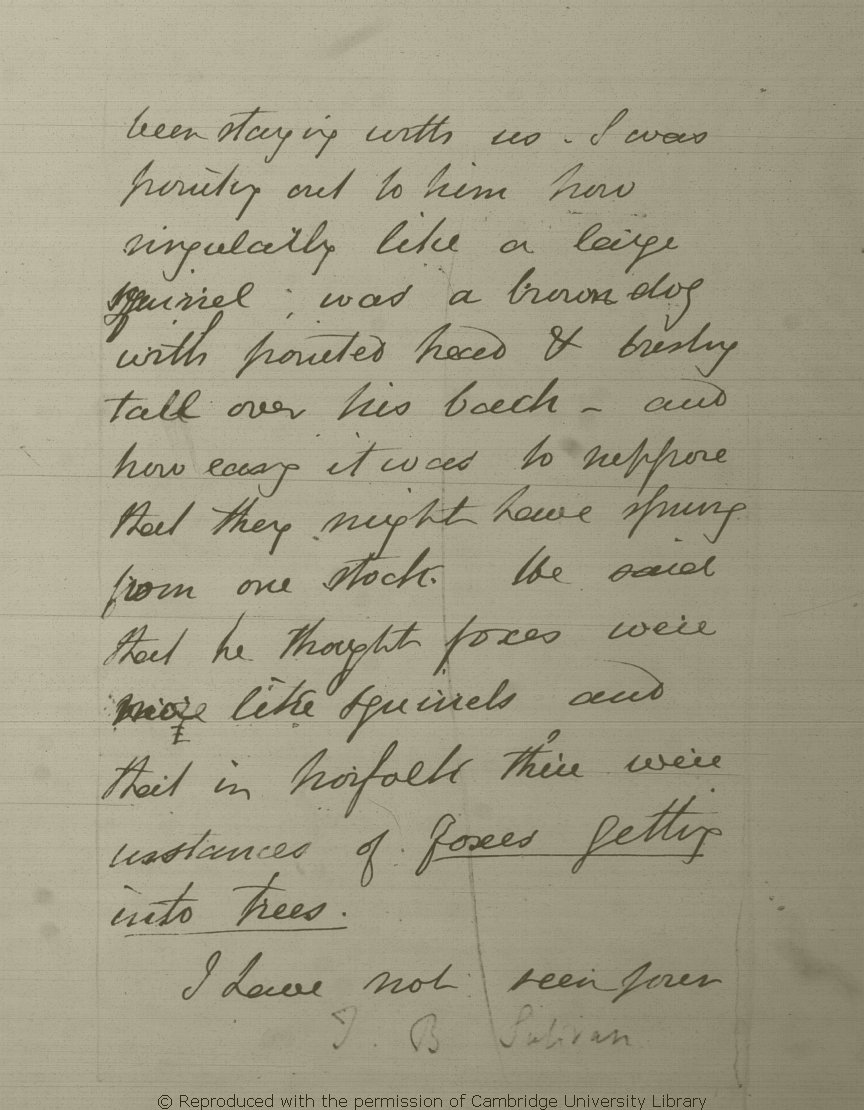 been staying with us. I was
pointing out to him how
singularly like a large
squirrel; was a brown dog
with pointed head & bushy
tall over his back – and
how easy it was to suppose
that they might have sprung
from one stock. He said
that he thought foxes were
more like squirrels and
that in Norfolk there were
instances of foxes getting
into trees.
I have not seen
J. B Sulivan
© Reproduced with the permission of Cambridge University Library